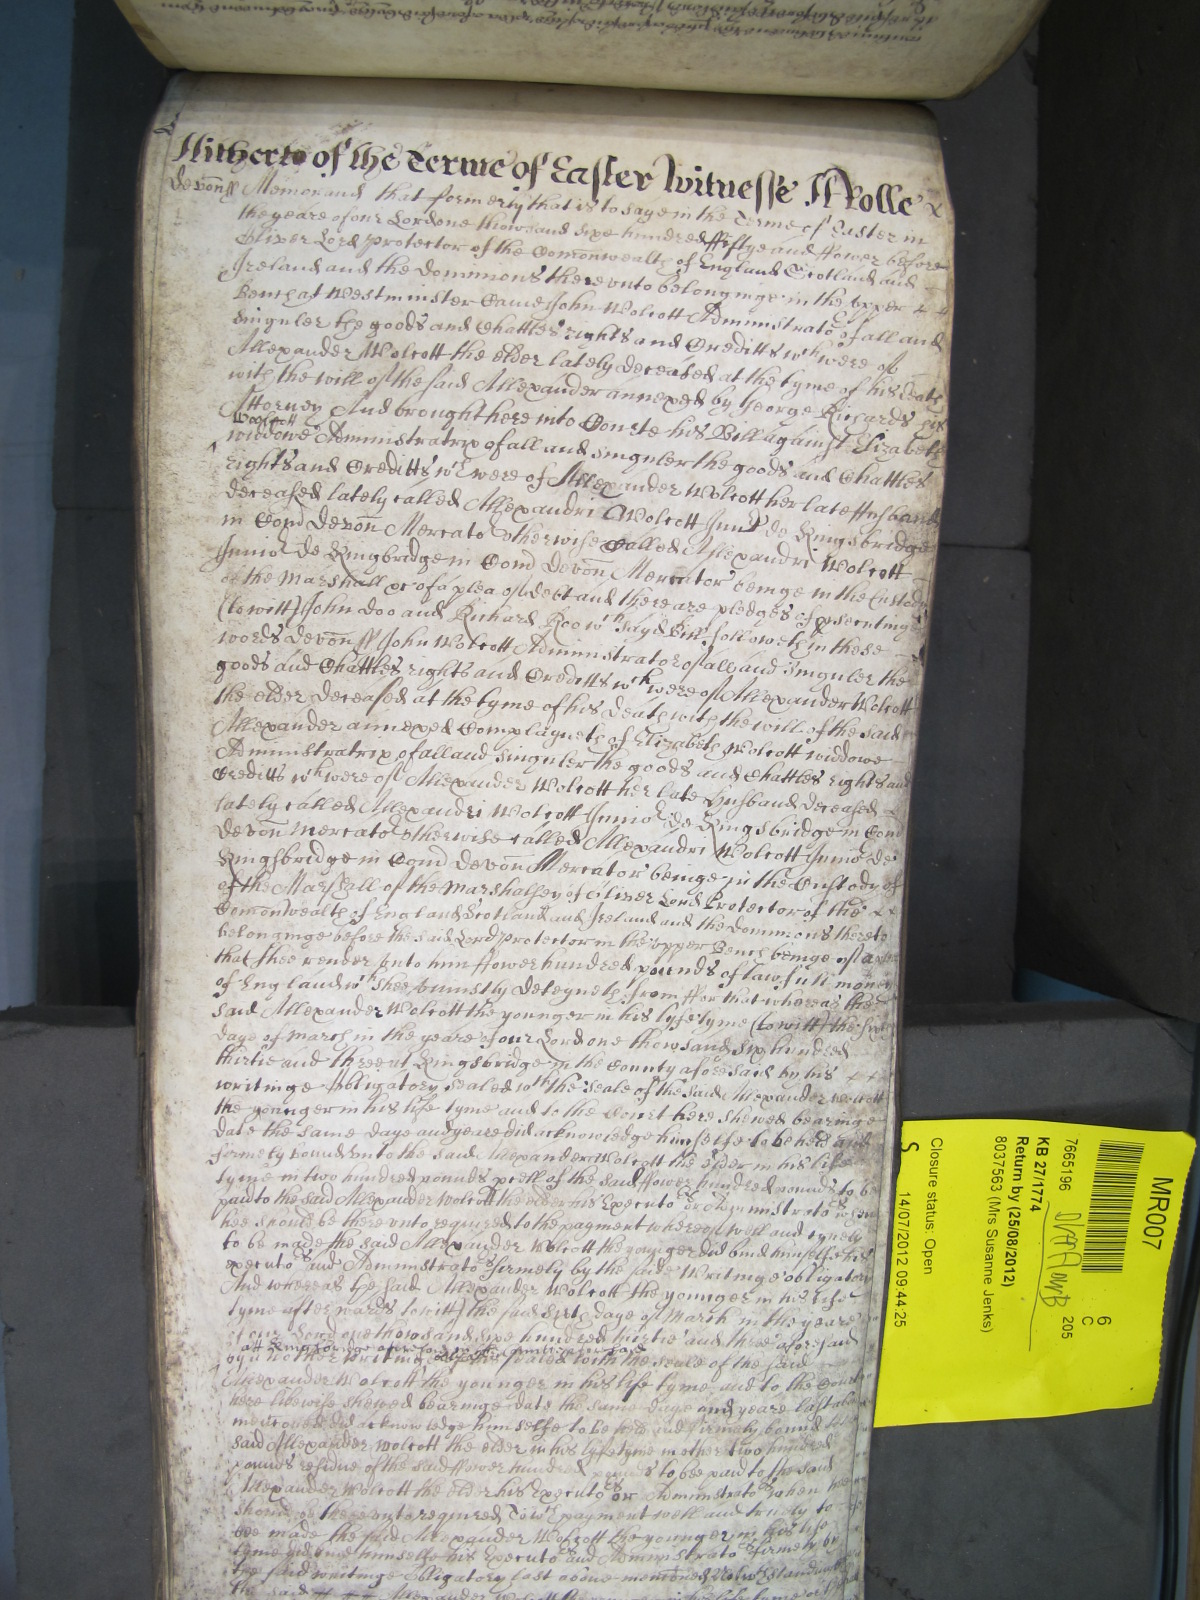 Hitherto of the Terme of Easter Witnesse H Rolle
Devon ss Memorand that formerly that is to saye in the Terme of Easter in
the yeare of our Lord one thowsand sixe hundred fiftye and ffower before
Oliver Lord protector of the Comonwealth of England Scotland and
Ireland and the dominions thereunto belonginge in the upper
Bench at Westminster Came John Wolcott Administrator of all and
singuler the goods and Chattles rights and Creditts wch were of
Allexander Wolcott the elder lately deceased at the tyme of his death
with the will of the said Allexander annexed by George Richards his
Attorney And brought here into Courte his Bill against Elizabeth
Wolcott
widdowe Administratrix of all and singuler the goods and Chattles
rights and Creditts wch were of Allexander Wolcott her late Husband
deceased lately called Allexandri Wolcott Junr de Kingsbridge
in Comd Devon Mercator otherwise called Allexandri Wolcott
Junior de Kingbridge in Comd Devon Mercator beinge in the Custody
of the Marshall &c of a plea of debt and there are pledges of prosecutinge
(to witt) John Doo and Richard Roo wch sayd Bill followeth in these
words Devon ss John Wolcott Administrator of all and singuler the
goods and Chattles rights and Creditts wch were of Allexander Wolcott
the elder deceased at the tyme of his death with the will of the said
Allexander annexed Complayneth of Elizabeth Wolcott widdowe
Administratrix of all and singuler the goods and Chattles rights and
Creditts wch were of Allexander Wolcott her late Husband deceased
lately called Allexandri Wolcott Junior de Kingsbridge in Comd
Devon Mercator otherwise called Allexandri Wolcott Junior de
Kingsbridge in Comd Devon Mercator beinge in the Custody of
of the Marshall of the Marshalsey of Oliver Lord Protector of the
Comonwealth of England Scotland and Ireland and the dominions thereto
belonginge before the said Lord protector in the upper Bench beinge of a plea
that shee render unto him ffower hundred pounds of lawfull money
of England wch shee uniustly deteyneth from ffor that whereas the
said Allexander Wolcott the younger in his lyfe tyme (to witt) the sixt
daye of March in the yeare of our Lord one thowsand six hundred
thirtie and three at Kingsbridge in the County aforesaid by his
writinge Obligatory sealed wth the seale of the said Allexander Wolcott
the younger in his life tyme and to the Court here shewed bearinge
date the same daye and yeare did acknowledge himselfe to be held and
firmely bound unto the said Allexander Wolcott the elder in his life
tyme in two hundred pounds pcell of the said ffower hundred pounds to be
paid to the said Allexander Wolcott the elder his Executors or Administrators when
hee should be thereunto required to the payment whereof well and truely
to be made the said Allexander Wolcott the younger did bind himselfe his
executors and Administrators firmely by the said Writinge obligatory
And whereas the said Allexander Wolcott the younger in his life
tyme afterwards (to witt) the said sixth daye of March in the yeare
of our Lord one thowsand sixe hundred thirtie and three aforesaid
att Kingsbridge aforesaid in the County aforesaid
by another writinge sealed with the seale of the said
Allexander Wolcott the younger in his life tyme and to the Court
here likewise shewed bearinge date the same daye and yeare last above
mencioned did acknowledge himselfe to be held and firmely bound to the
said Allexander Wolcott the elder in his lyfe tyme in other two hundred
pounds residue of the said ffower hundred pounds to bee paid to the said
Allexander Wolcott the elder his Executors or Administrators when hee
should be thereunto required To wch payment well and truely to
bee made the said Allexander Wolcott the younger in his life
tyme did bind himselfe his Executors and Administrators firmely by
the said writinge Obligatory last above menconed
the said Allexander Wolcott the younger in his life tyme
MR007
6
C
7665196
205
KB 27/1774
Return by (25/08/2012)
8037563 (Mrs Susanne Jenks)
Closure status: Open
S
14/07/2012 09:44:25